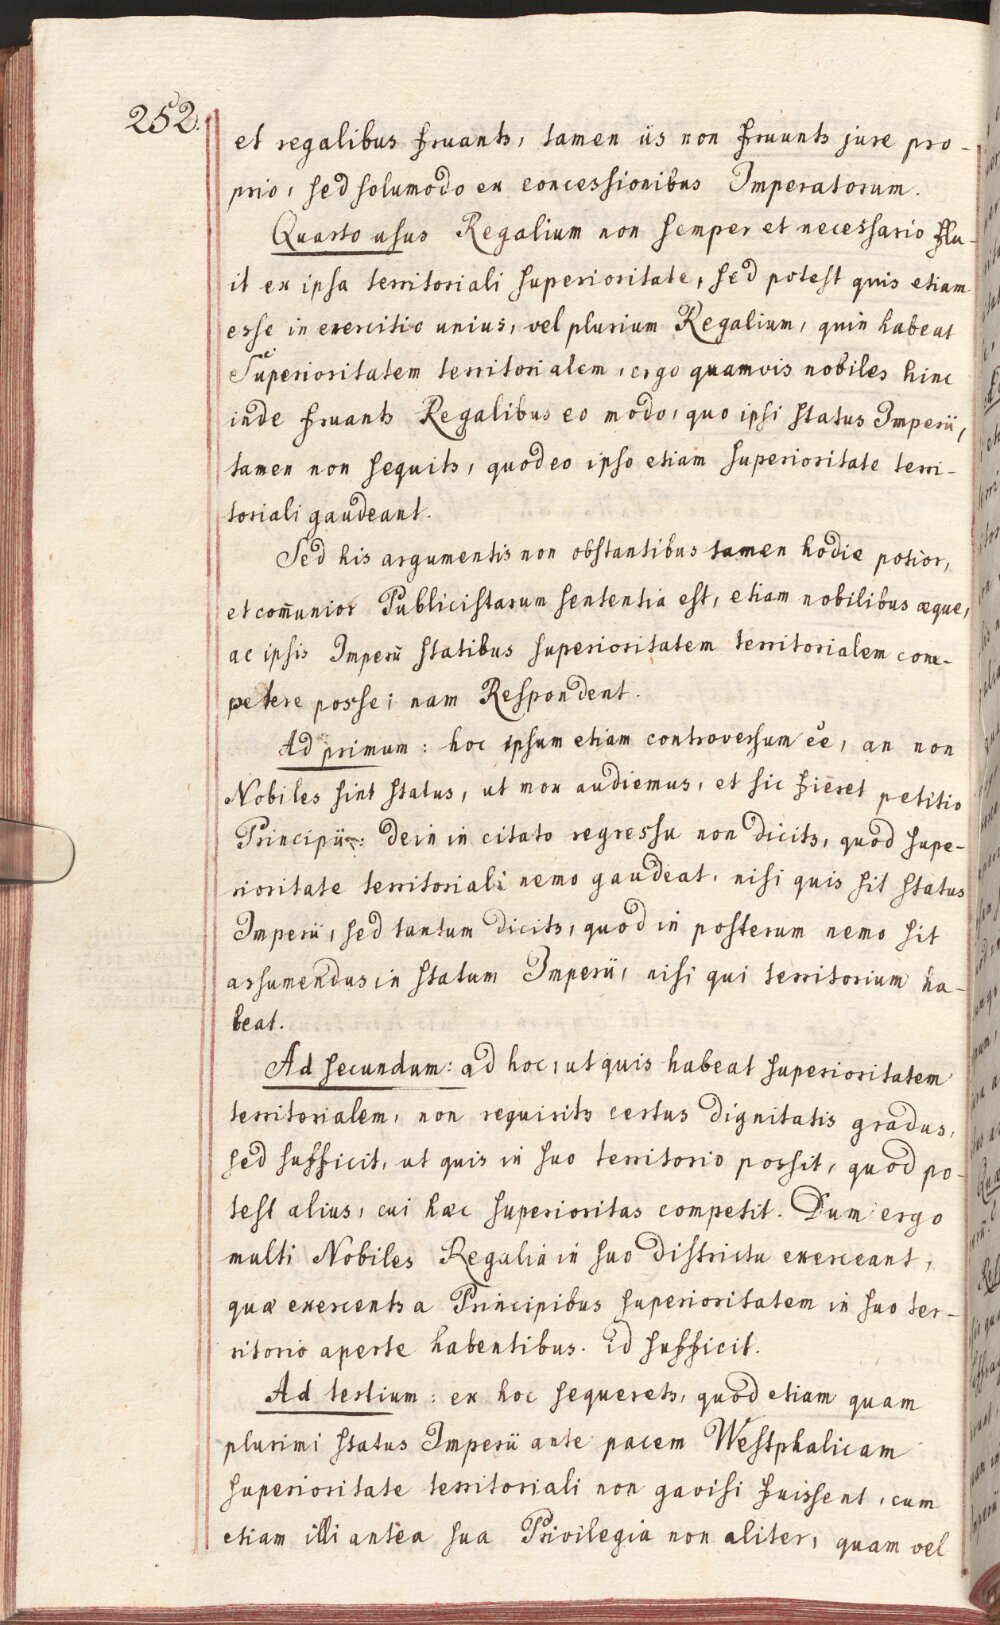 252.
et regalibus fruantr, tamen iis non fruuntr jure pro-
prio, sed solumodo ex concessionibus Imperatorum.
Quarto usus Regalium non semper et necessario flu-
it ex ipsa territoriali superioritate, sed potest quis etiam
esse in exercitio unius, vel plurium Regalium, quin habeat
Superioritatem territorialem, ergo quamvis nobiles hinc
inde fruantr Regalibus eo modo, quo ipsi status Imperii,
tamen non sequitr, quod eo ipso etiam superioritate terri-
toriali gaudeant.
Sed his argumentis non obstantibus tamen hodie potior,
et com̄unior Publicistarum sententia est, etiam nobilibus æque,
ac ipsis Imperii statibus superioritatem territorialem com-
petere posse; nam Respondent.
Ad primum: hoc ipsum etiam controversum ēe, an non
Nobiles sint status, ut mox audiemus, et sic fieret petitio
Principii: dein in citato regressu non dicitr, quod supe-
rioritate territoriali nemo gaudeat, nisi quis sit status
Imperii, sed tantum dicitr, quod in posterum nemo sit
assumendus in statum Imperii, nisi qui territorium ha-
beat.
Ad secundum: ad hoc, ut quis habeat superioritatem
territorialem, non requiritr certus dignitatis gradus,
sed sufficit, ut quis in suo territorio possit, quod po-
test alius, cui hæc superioritas competit. Dum ergo
multi Nobiles Regalia in suo districtu exerceant,
quæ exercentr a Principibus superioritatem in suo ter-
ritorio aperte habentibus. id sufficit.
Ad tertium: ex hoc sequeretr, quod etiam quam
plurimi status Imperii ante pacem Westphalicam
superioritate territoriali non gavisi fuissent, cum
etiam illi antea sua Privilegia non aliter, quam vel